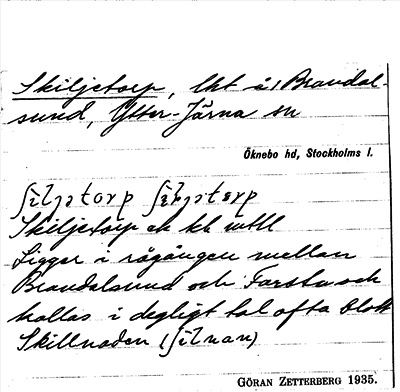 Skiljetorp, lht å 1 Brandal-
sund, Ytter-Järna sn
Öknebo hd, Stockholms l.
Skiljetorp en kl
Ligger i rågången mellan
Brandalsund och Farsta och
kallas i dagligt tal ofta blott
Skillnaden (ʃilnan)
GÖRAN ZETTERBERG 1935.